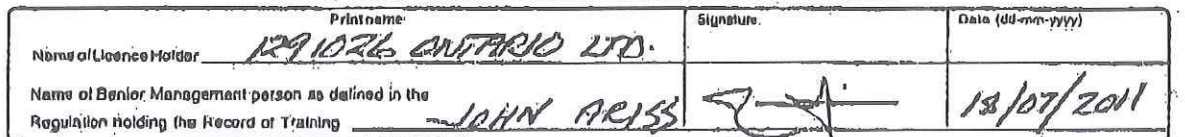 Print name Signature. Data (dd-mm-yyyy)
Name of Licence Holder 1291026 ONTARIO LTD.
Name of Senior Management person as defined in the
Regulation holding the Record of Training JOHN ARISS 18/07/2011